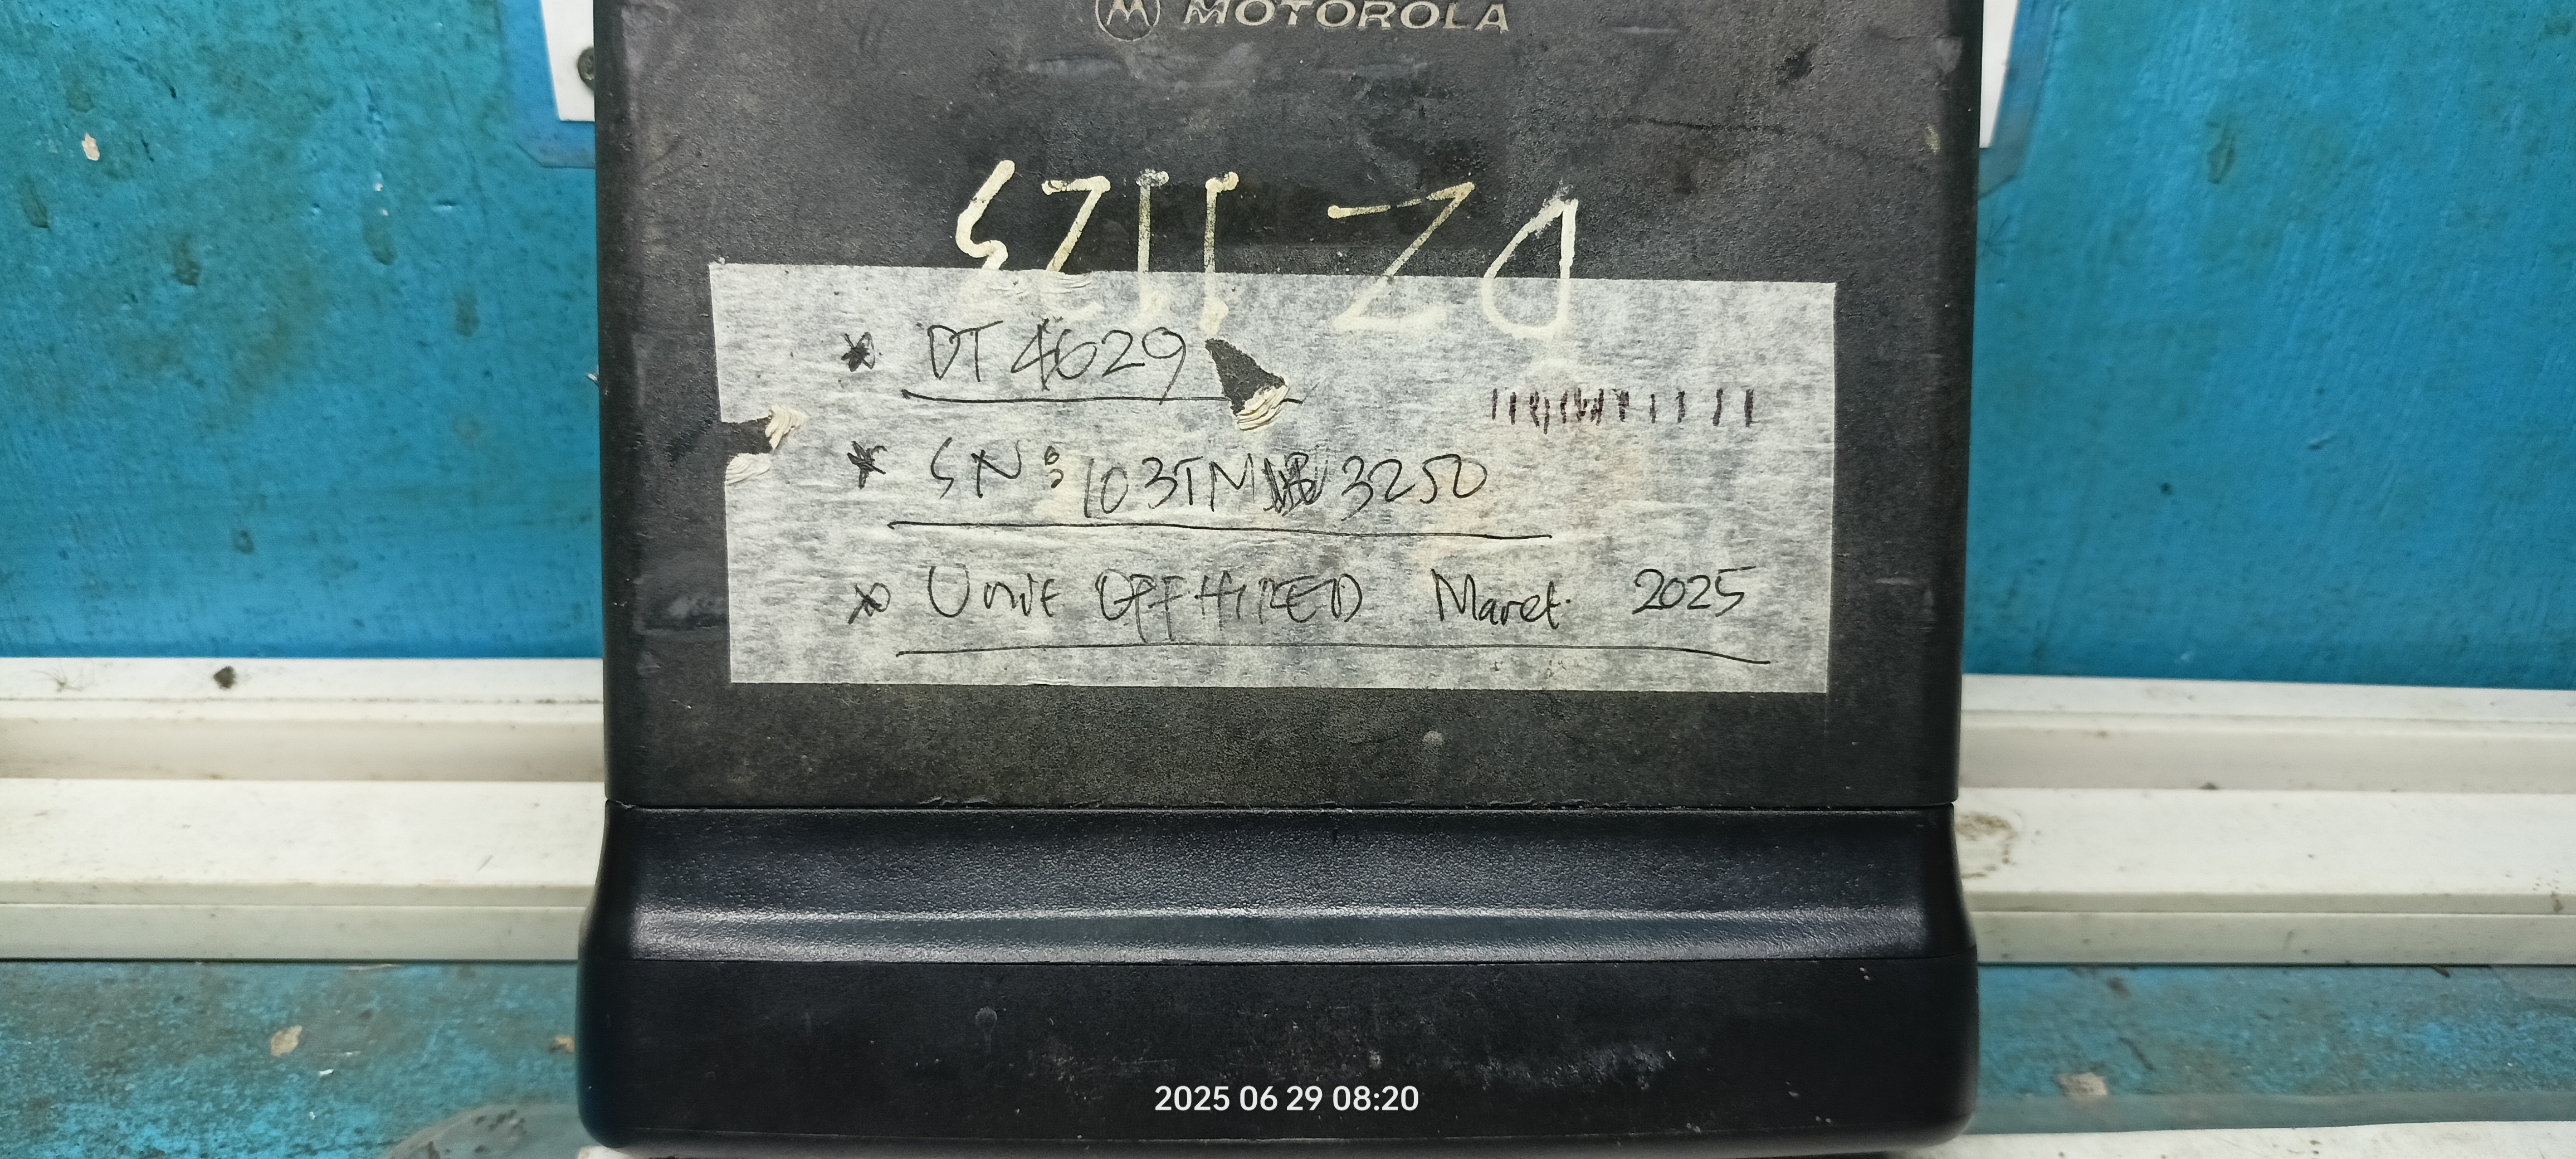 MOTOROLA
* DT 4629
* SN: 103TM 3250
* Unit OFF HIRED Maret. 2025
2025 06 29 08:20